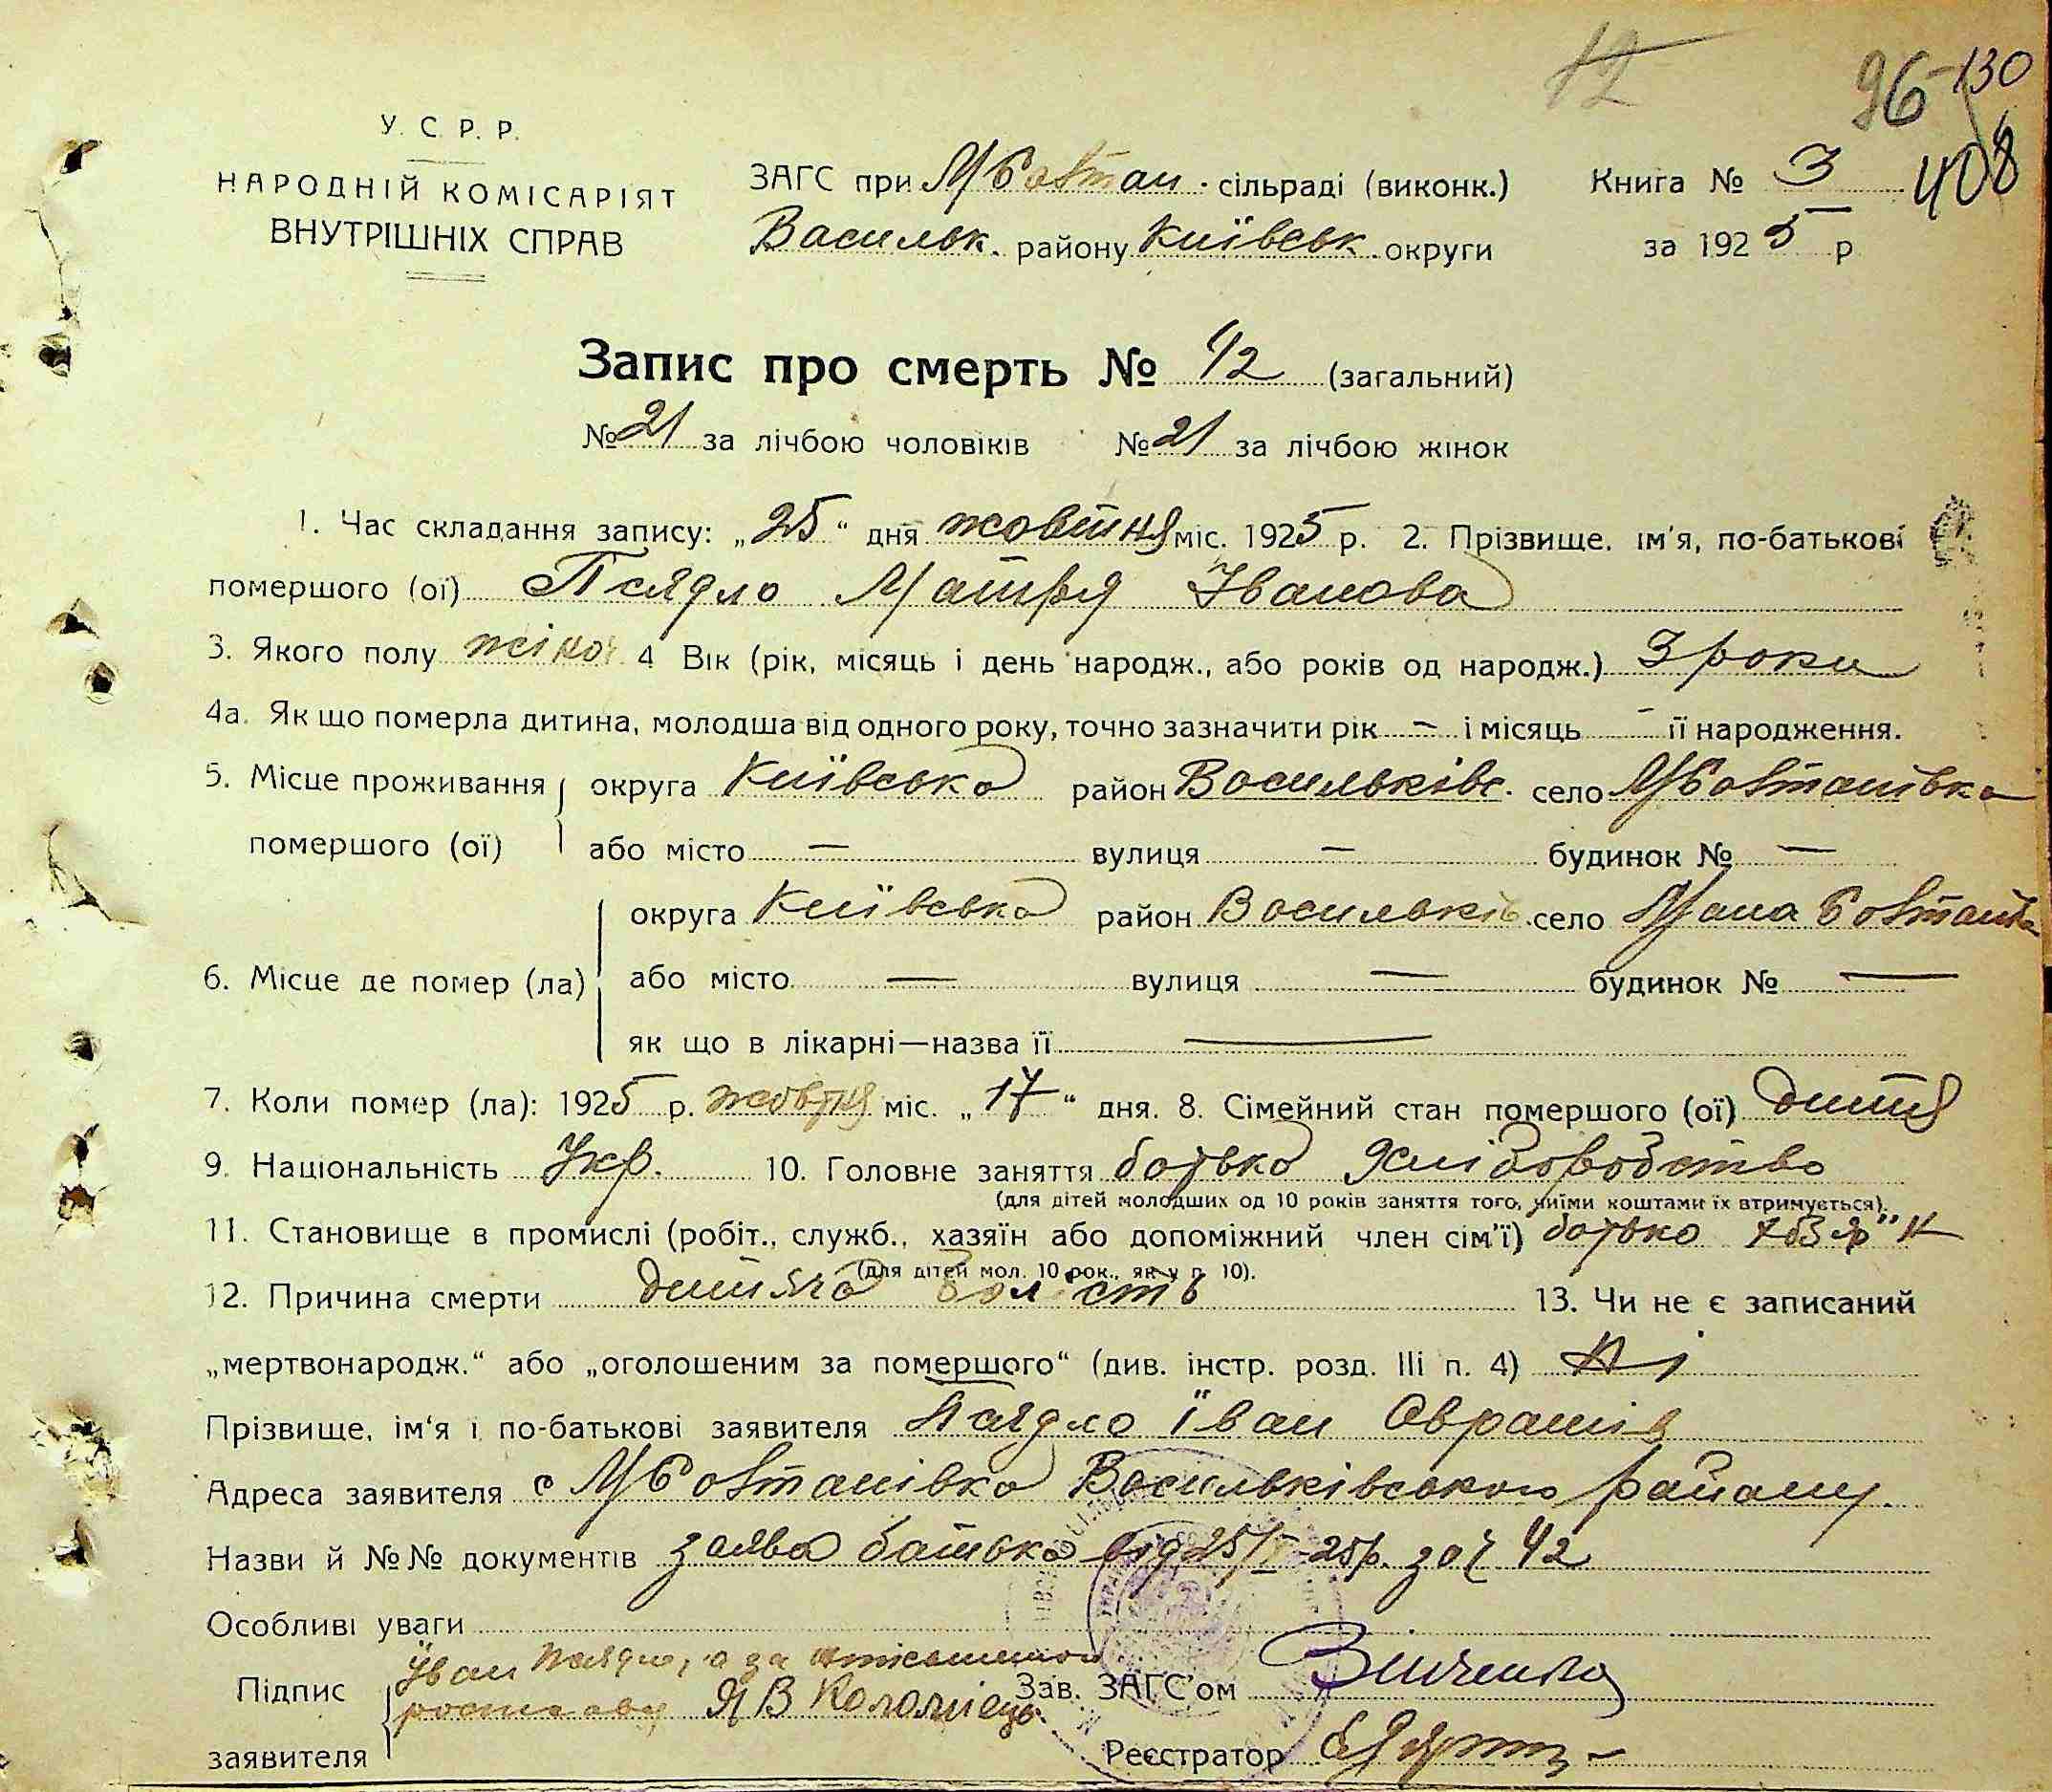 12
96 130
408
У. С. Р. Р.
НАРОДНІЙ КОМІСАРІЯТ
ВНУТРІШНІХ СПРАВ
ЗАГС при М Болтан. сільраді (виконк.)
Васильк. району Київськ. округи
Книга № 3
за 1925 р
Запис про смерть № 42 (загальний)
№ 21 за лічбою чоловіків № 21 за лічбою жінок
1. Час складання запису: „25“ дня жовтня міс. 1925 р. 2. Прізвище. ім'я, по-батькові
помершого (ої) Псядло Матря Іванова
3. Якого полу жіноч 4 Вік (рік, місяць і день народж., або років од народж.) 3 роки
4а. Як що померла дитина, молодша від одного року, точно зазначити рік — і місяць — її народження.
5. Місце проживання округа Київська район Васильківс. село М Болтанівка
помершого (ої) або місто — вулиця — будинок № —
округа Київська район Васильків. село Мала
6. Місце де помер (ла) або місто — вулиця — будинок № —
як що в лікарні—назва її —
7. Коли помер (ла): 1925 р. жовтня міс. „17“ дня. 8. Сімейний стан помершого (ої) дитя
9. Національність Укр. 10. Головне заняття батько хліборобство
(для дітей молодших од 10 років заняття того, чиїми коштами їх втримується).
11. Становище в промислі (робіт., служб., хазяїн або допоміжний член сім'ї) батько
(для дітей мол. 10 рок., як у п. 10).
12. Причина смерти дитяча болість 13. Чи не є записаний
„мертвонародж.“ або „оголошеним за помершого“ (див. інстр. розд. III п. 4) Ні
Прізвище, ім'я і по-батькові заявителя Псядло Іван Оврамів
Адреса заявителя с М Болтанівка Васильківського району.
Назви й №№ документів заява батька від 25/X-25р. за ч 42
Особливі уваги
Підпис Іван Псядло, а за
заявителя Я В Коломієць
Зав. ЗАГС'ом Зінченко
Реєстратор